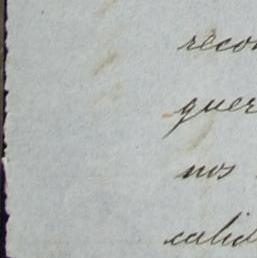 recon
quer
nos
calid